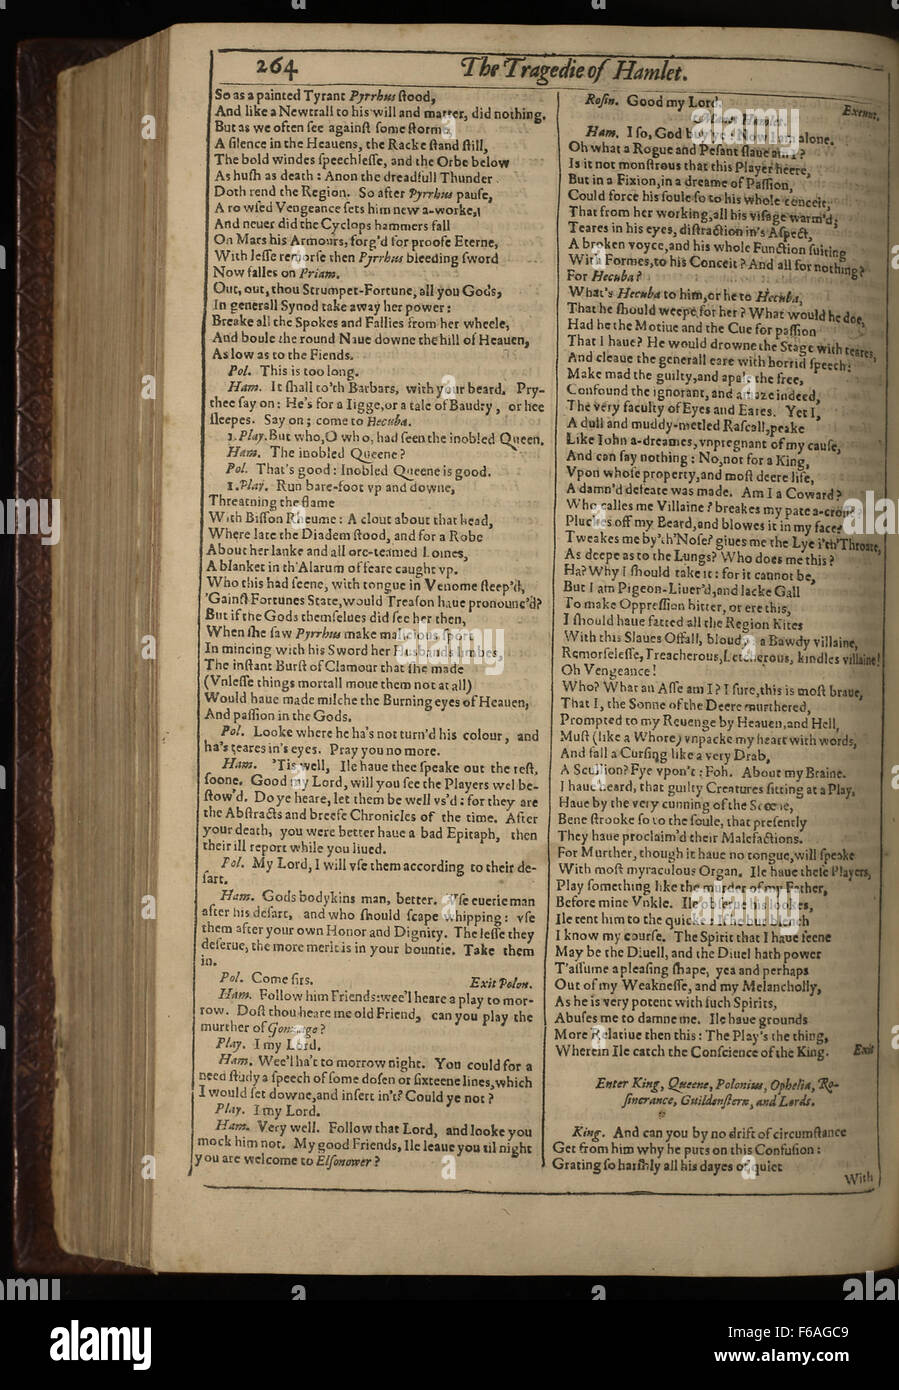 264
The Tragedie of Hamlet.
So as a painted Tyrant Pyrrhus ſtood,
And like a Newtrall to his will and matter, did nothing.
But as we often ſee againſt ſome ſtorme,
A ſilence in the Heauens, the Racke ſtand ſtill,
The bold windes ſpeechleſſe, and the Orbe below
As huſh as death: Anon the dreadfull Thunder
Doth rend the Region. So after Pyrrhus pauſe,
A rowſed Vengeance ſets him new a-worke,
And neuer did the Cyclops hammers fall
On Mars his Armours, forg'd for proofe Eterne,
With leſſe remorſe then Pyrrhus bleeding ſword
Now falles on Priam.
Out, out, thou Strumpet-Fortune, all you Gods,
In generall Synod take away her power:
Breake all the Spokes and Fallies from her wheele,
And boule the round Naue downe the hill of Heauen,
As low as to the Fiends.
Pol. This is too long.
Ham. It ſhall to'th Barbars, with your beard. Pry-
thee ſay on: He's for a Iigge, or a tale of Baudry, or hee
ſleepes. Say on; come to Hecuba.
1. Play. But who, O who, had ſeen the inobled Queen.
Ham. The inobled Queene?
Pol. That's good: Inobled Queene is good.
1. Play. Run bare-foot vp and downe,
Threatning the flame
With Biſſon Rheume: A clout about that head,
Where late the Diadem ſtood, and for a Robe
About her lanke and all ore-teamed Loines,
A blanket in th'Alarum of feare caught vp.
Who this had ſeene, with tongue in Venome ſteep'd,
'Gainſt Fortunes State, would Treaſon haue pronounc'd?
But if the Gods themſelues did ſee her then,
When ſhe ſaw Pyrrhus make malicious ſport
In mincing with his Sword her Husbands limbes,
The inſtant Burſt of Clamour that ſhe made
(Vnleſſe things mortall moue them not at all)
Would haue made milche the Burning eyes of Heauen,
And paſſion in the Gods.
Pol. Looke where he ha's not turn'd his colour, and
ha's teares in's eyes. Pray you no more.
Ham. 'Tis well, Ile haue thee ſpeake out the reſt,
ſoone. Good my Lord, will you ſee the Players wel be-
ſtow'd. Do ye heare, let them be well vs'd: for they are
the Abſtracts and breefe Chronicles of the time. After
your death, you were better haue a bad Epitaph, then
their ill report while you liued.
Pol. My Lord, I will vſe them according to their de-
ſart.
Ham. Gods bodykins man, better. Vſe euerie man
after his deſart, and who ſhould ſcape whipping: vſe
them after your own Honor and Dignity. The leſſe they
deſerue, the more merit is in your bountie. Take them
in.
Pol. Come ſirs. Exit Polon.
Ham. Follow him Friends: wee'l heare a play to mor-
row. Doſt thou heare me old Friend, can you play the
murther of Gonzago?
Play. I my Lord.
Ham. Wee'l ha't to morrow night. You could for a
need ſtudy a ſpeech of ſome doſen or ſixteene lines, which
I would ſet downe, and inſert in't? Could ye not?
Play. I my Lord.
Ham. Very well. Follow that Lord, and looke you
mock him not. My good Friends, Ile leaue you til night
you are welcome to Elſonower?
Roſin. Good my Lord. Exeunt.
Manet Hamlet.
Ham. I ſo, God buy'ye: Now I am alone.
Oh what a Rogue and Peſant ſlaue am I?
Is it not monſtrous that this Player heere,
But in a Fixion, in a dreame of Paſſion,
Could force his ſoule ſo to his whole conceit,
That from her working, all his viſage warm'd;
Teares in his eyes, diſtraction in's Aſpect,
A broken voyce, and his whole Function ſuiting
With Formes, to his Conceit? And all for nothing?
For Hecuba?
What's Hecuba to him, or he to Hecuba,
That he ſhould weepe for her? What would he doe,
Had he the Motiue and the Cue for paſſion
That I haue? He would drowne the Stage with teares,
And cleaue the generall eare with horrid ſpeech:
Make mad the guilty, and apale the free,
Confound the ignorant, and amaze indeed,
The very faculty of Eyes and Eares. Yet I,
A dull and muddy-metled Raſcall, peake
Like Iohn a-dreames, vnpregnant of my cauſe,
And can ſay nothing: No, not for a King,
Vpon whoſe property, and moſt deere life,
A damn'd defeate was made. Am I a Coward?
Who calles me Villaine? breakes my pate a-croſſe?
Pluckes off my Beard, and blowes it in my face?
Tweakes me by'th'Noſe? giues me the Lye i'th'Throate,
As deepe as to the Lungs? Who does me this?
Ha? Why I ſhould take it: for it cannot be,
But I am Pigeon-Liuer'd, and lacke Gall
To make Oppreſſion bitter, or ere this,
I ſhould haue fatted all the Region Kites
With this Slaues Offall, bloudy: a Bawdy villaine,
Remorſeleſſe, Treacherous, Letcherous, kindles villaine!
Oh Vengeance!
Who? What an Aſſe am I? I ſure, this is moſt braue,
That I, the Sonne of the Deere murthered,
Prompted to my Reuenge by Heauen, and Hell,
Muſt (like a Whore) vnpacke my heart with words,
And fall a Curſing like a very Drab,
A Scullion? Fye vpon't: Foh. About my Braine.
I haue heard, that guilty Creatures ſitting at a Play,
Haue by the very cunning of the Scœne,
Bene ſtrooke ſo to the ſoule, that preſently
They haue proclaim'd their Malefactions.
For Murther, though it haue no tongue, will ſpeake
With moſt myraculous Organ. Ile haue theſe Players,
Play ſomething like the murder of my Father,
Before mine Vnkle. Ile obſerue his lookes,
Ile tent him to the quicke: If he but blench
I know my courſe. The Spirit that I haue ſeene
May be the Diuell, and the Diuel hath power
T'aſſume a pleaſing ſhape, yea and perhaps
Out of my Weakneſſe, and my Melancholly,
As he is very potent with ſuch Spirits,
Abuſes me to damne me. Ile haue grounds
More Relatiue then this: The Play's the thing,
Wherein Ile catch the Conſcience of the King. Exit
Enter King, Queene, Polonius, Ophelia, Ro-
ſincrance, Guildenſtern, and Lords.
King. And can you by no drift of circumſtance
Get from him why he puts on this Confuſion:
Grating ſo harſhly all his dayes of quiet
With
alamy
alamy
alamy
alamy
Image ID: F6AGC9
www.alamy.com